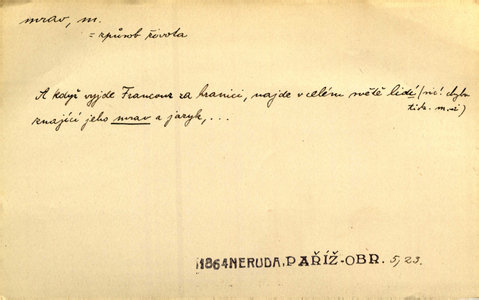 mrav, m.
= způsob života
A když vyjde Francouz za hranici, najde v celém světě lidé (sic! chyba
tisk. m. í)
znající jeho mrav a jazyk, ...
1864 NERUDA, PAŘÍŽ-OBR. 5, 23.